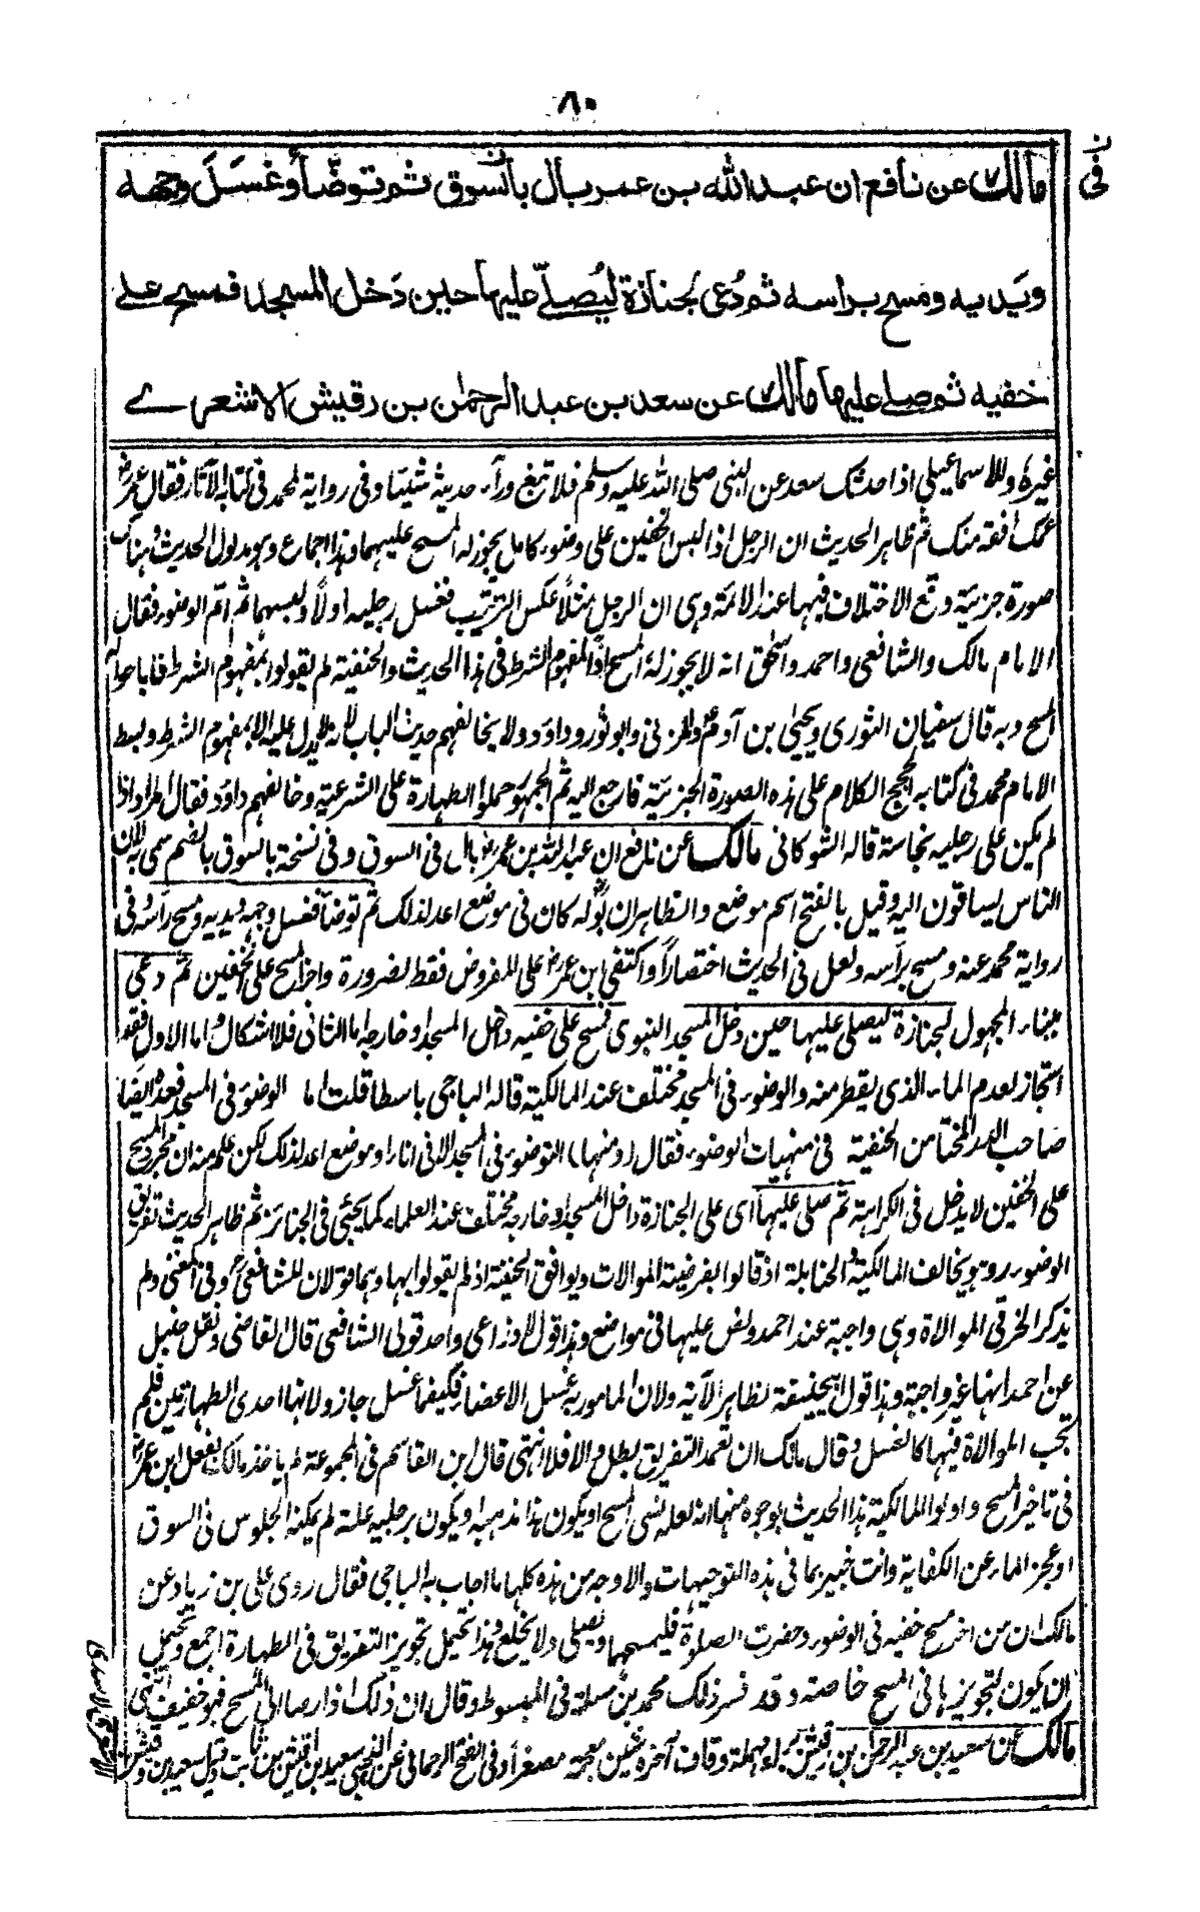 ٨٠
مالك عن نافع ان عبد الله بن عمر بال بالسوق ثم توضأ وغسل وجهه
في
ويديه ومسح براسه ثم دُعي لجنازة ليُصلّے عليها حين دَخل المسجد فمسح علے
خفيه ثم صلے عليها مالك عن سعد بن عبد الرحمٰن بن رقيش الاشعرے
غيره وللاسماعيلي اذا حدثك سعد عن النبي صلى الله عليه وسلم فلا تبغ وراء حديثه شيئا وفي رواية لمحمد في كتابه الآثار فقال عمر
عمك افقه منك ثم ظاهر الحديث ان الرجل اذا لبس الخفين على وضوء كامل يجوز له المسح عليهما وهذا اجماع وهو مدلول الحديث وهناك
صورة جزئية وقع الاختلاف فيها عند الائمة وهي ان الرجل مثلاً عكس الترتيب فغسل رجليه اولاً ولبسهما ثم اتم الوضوء فقال
الامام مالك والشافعي واحمد واسحٰق انه لا يجوز له المسح اذاً لمفهوم الشرط في هذا الحديث والحنفية لم يقولوا بمفهوم الشرط فاباحوا له
المسح وبه قال سفيان الثوري ويحيىٰ بن آدم والمزني وابو ثور وداود ولا يخالفهم حديث الباب لانه لا يدل عليه الا بمفهوم الشرط وبسط
الامام محمد في كتابه الحجج الكلام على هذه الصورة الجزئية فارجع اليه ثم الجمهور حملوا الطهارة على الشرعية وخالفهم داود فقال المراد اذا
لم يكن على رجليه نجاسة قاله الشوكاني مالك عن نافع ان عبد الله بن عمر بال في السوق وفي نسخة بالسوق بالضم سمي به لان
الناس يساقون اليه وقيل بالفتح اسم موضع والظاهر ان بوله كان في موضع اعد لذلك ثم توضأ فغسل وجهه ويديه ومسح راسه وفي
رواية محمد عنه ومسح برأسه ولعل في الحديث اختصاراً واكتفى ابن عمر على المفروض فقط لضرورة واخر المسح على الخفين ثم دعي
ببناء المجهول لجنازة ليصلي عليها حين دخل المسجد النبوي فمسح على خفيه داخل المسجد او خارجه اما الثاني فلا اشكال واما الاول فقد
استجاز لعدم الماء الذي يقطر منه والوضوء في المسجد مختلف عند المالكية قاله الباجي باسطا قلت اما الوضوء في المسجد فعده ايضا
صاحب الدر المختار من الحنفية في منهيات الوضوء فقال (ومنها) التوضوء في المسجد الا في اناء او موضع اعد لذلك لكن علم منه ان مجرد المسح
على الخفين لا يدخل في الكراهة ثم صلى عليها اى على الجنازة داخل المسجد او خارجه مختلف عند العلماء كما يجئى في الجنائز ثم ظاهر الحديث تفريق
الوضوء وهو يخالف المالكية والحنابلة اذ قالوا بفرضية الموالات ويوافق الحنفية اذ لم يقولوا بها وهما قولان للشافعي وفي المغني ولم
يذكر الخرقي الموالاة وهي واجبة عند احمد ونص عليها في مواضع وهذا قول الاوزاعي واحد قولي الشافعي قال القاضي ونقل حنبل
عن احمد انها غير واجبة وهذا قول ابي حنيفة لظاهر الآية ولان المامور به غسل الاعضاء فكيفما غسل جاز ولانها احدى الطهارتين فلم
تجب الموالاة فيها كالغسل وقال مالك ان تعمد التفريق بطل والا فلا انتهى قال ابن القاسم في المجموعة لم ياخذ مالك بفعل ابن عمر
في تاخير المسح واولوا المالكية هذا الحديث بوجوه منها انه لعله نسي المسح او يكون هذا مذهبه ويكون برجليه علة لم يمكنه الجلوس في السوق
او عجز الماء عن الكفاية وانت خبير بما في هذه التوجيهات والاوجه من هذه كلها ما اجاب به الباجي فقال روى علي بن زياد عن
مالك ان من اخر مسح خفيه في الوضوء وحضرت الصلوة فليمسحهما ويصلي ولا يخلع وهذا يحتمل تجويز التفريق في الطهارة اجمع ويحتمل
ان يكون لتجويزها في المسح خاصة وقد فسر ذلك محمد بن مسلمة في المبسوط وقال ان ذلك اذا رصا الى المسح فهو خفيف انتهى
مالك عن سعيد بن عبد الرحمٰن بن رقيش براء مهملة وقاف آخره شين معجمة مصغراً وفي الفتح الرحماني عن العيني سعيد بن رقيش بن ثابت وقيل سعيد بن رقيش